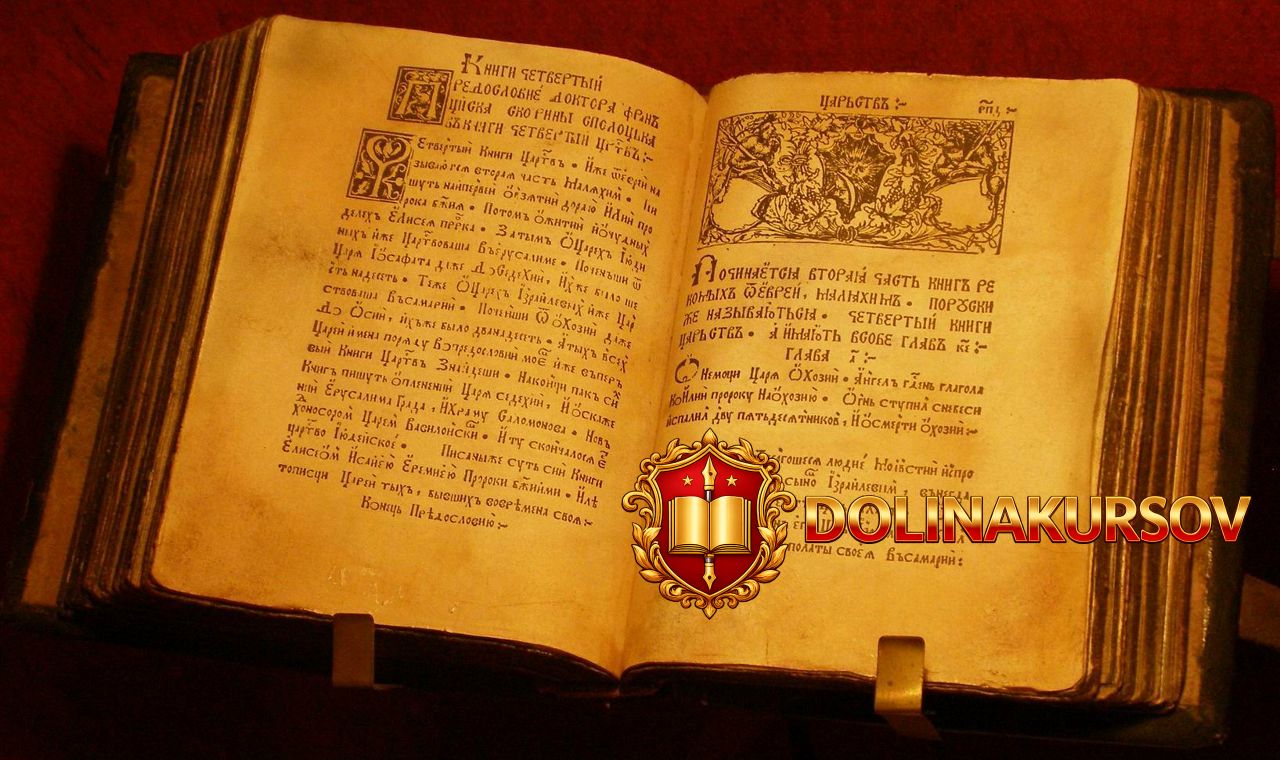 Книги четвертыи
Предословие доктора Фрăнъ
циска Скорины сполоцька
въ книги четвертыи цртвъ:~
Четвертыи Книги Цартвъ • Иже ѿ еврей на
зываются вторая часть Малахим •
шуть найпервей о взятии дораю Илии про
рока бжия • Потомъ о житии и о чудныхъ
делехъ Елисея прⷪрка • Затымъ о Царехъ Июди
ныхъ иже Цартвоваша въ Ерусалиме • Поченъши ѿ
Царя Иосафата даже до Седехии, ихже было ше
сть надесеть • Теже о Царехъ Израилевыхъ иже Цар
ствоваша въ Самарии • Поченши ѿ Охозии даже
до Осии, ихъже было дванадесеть • А тыхъ всехъ
Царей имена поряду в предословии моеⷨ иже въ перъ
вый Книги Цартвъ Знайдеши • Наконци пакъ сихъ
Книгъ пишуть о пленении Царя Седехии, и о скаже
нии Ерусалима Града, и Храму Саломонова • Новъ
хоносором Царем Вавилонски • И ту скончалося
цартво Июдейское • Писаныже суть сии Книги
Елисеом Исаиею Еремиею Пророки бжиими • Иле
тописци Царей тых, бывших во времена своя :~
Конець Предословию :~
Царьствъ :~
Починается вторая часть книгъ ре
комыхъ ѿ еврей, малахимъ • поруски
же называються • четвертыи книги
царьствъ • а имають всобе главъ к҃е :~
Глава а҃ :~
О немоци Царя Охозии • Ангелъ гдень глагола
ко Илии пророку на Охозию • Огнь ступил с небеси
и спалил дву пятьдесятников, и о смерти Охозии :~
людие Моявстии и спро
Израилевым, внегда
полаты своея въ Самарии :
DOLINAKURSOV